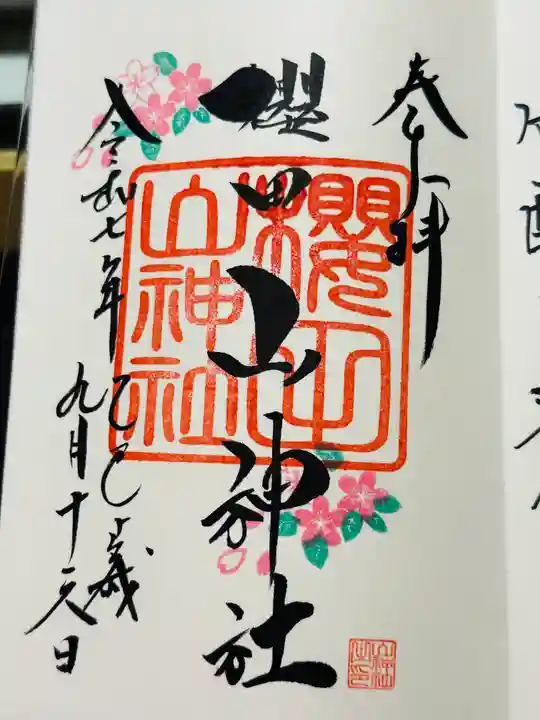 奉拝
櫻田山神社
令和七年
乙巳歳
九月十六日
櫻田
山神社